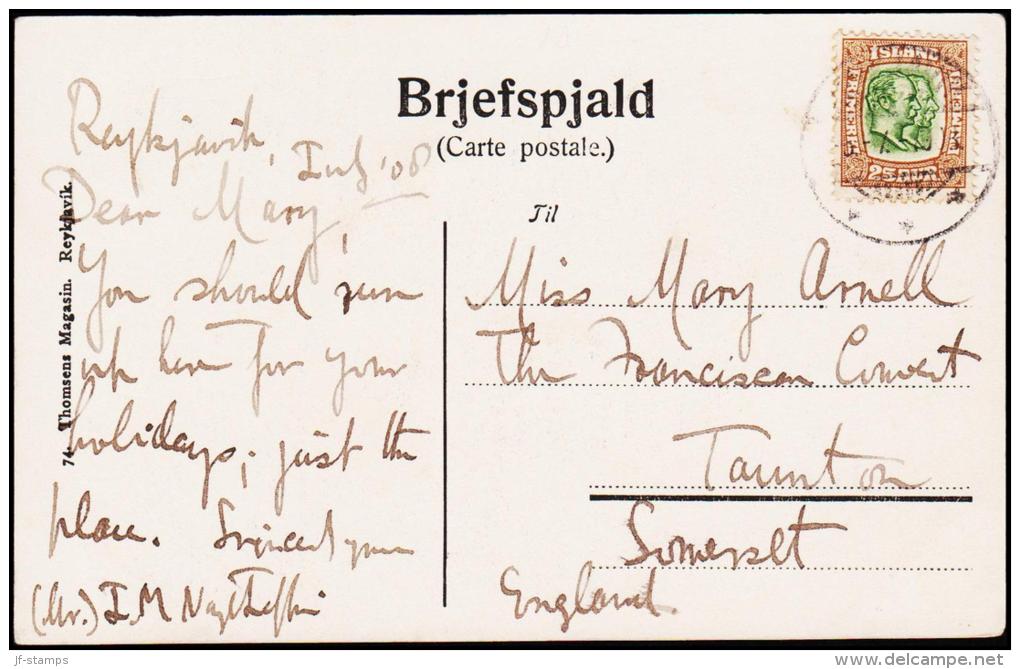 Brjefspjald
(Carte postale.)
Til
ÍSLAND
FRÍMERKI
25
Reykjavik,
July '08
Dear Mary,
You should run
up here for your
holidays; just the
place. Sincerely yours
(Mr.) I. M.
74 Thomsens Magasin. Reykjavik.
Miss Mary Arnell
The Franciscan Convent
Taunton
Somerset
England.
jf-stamps
www.delcampe.net